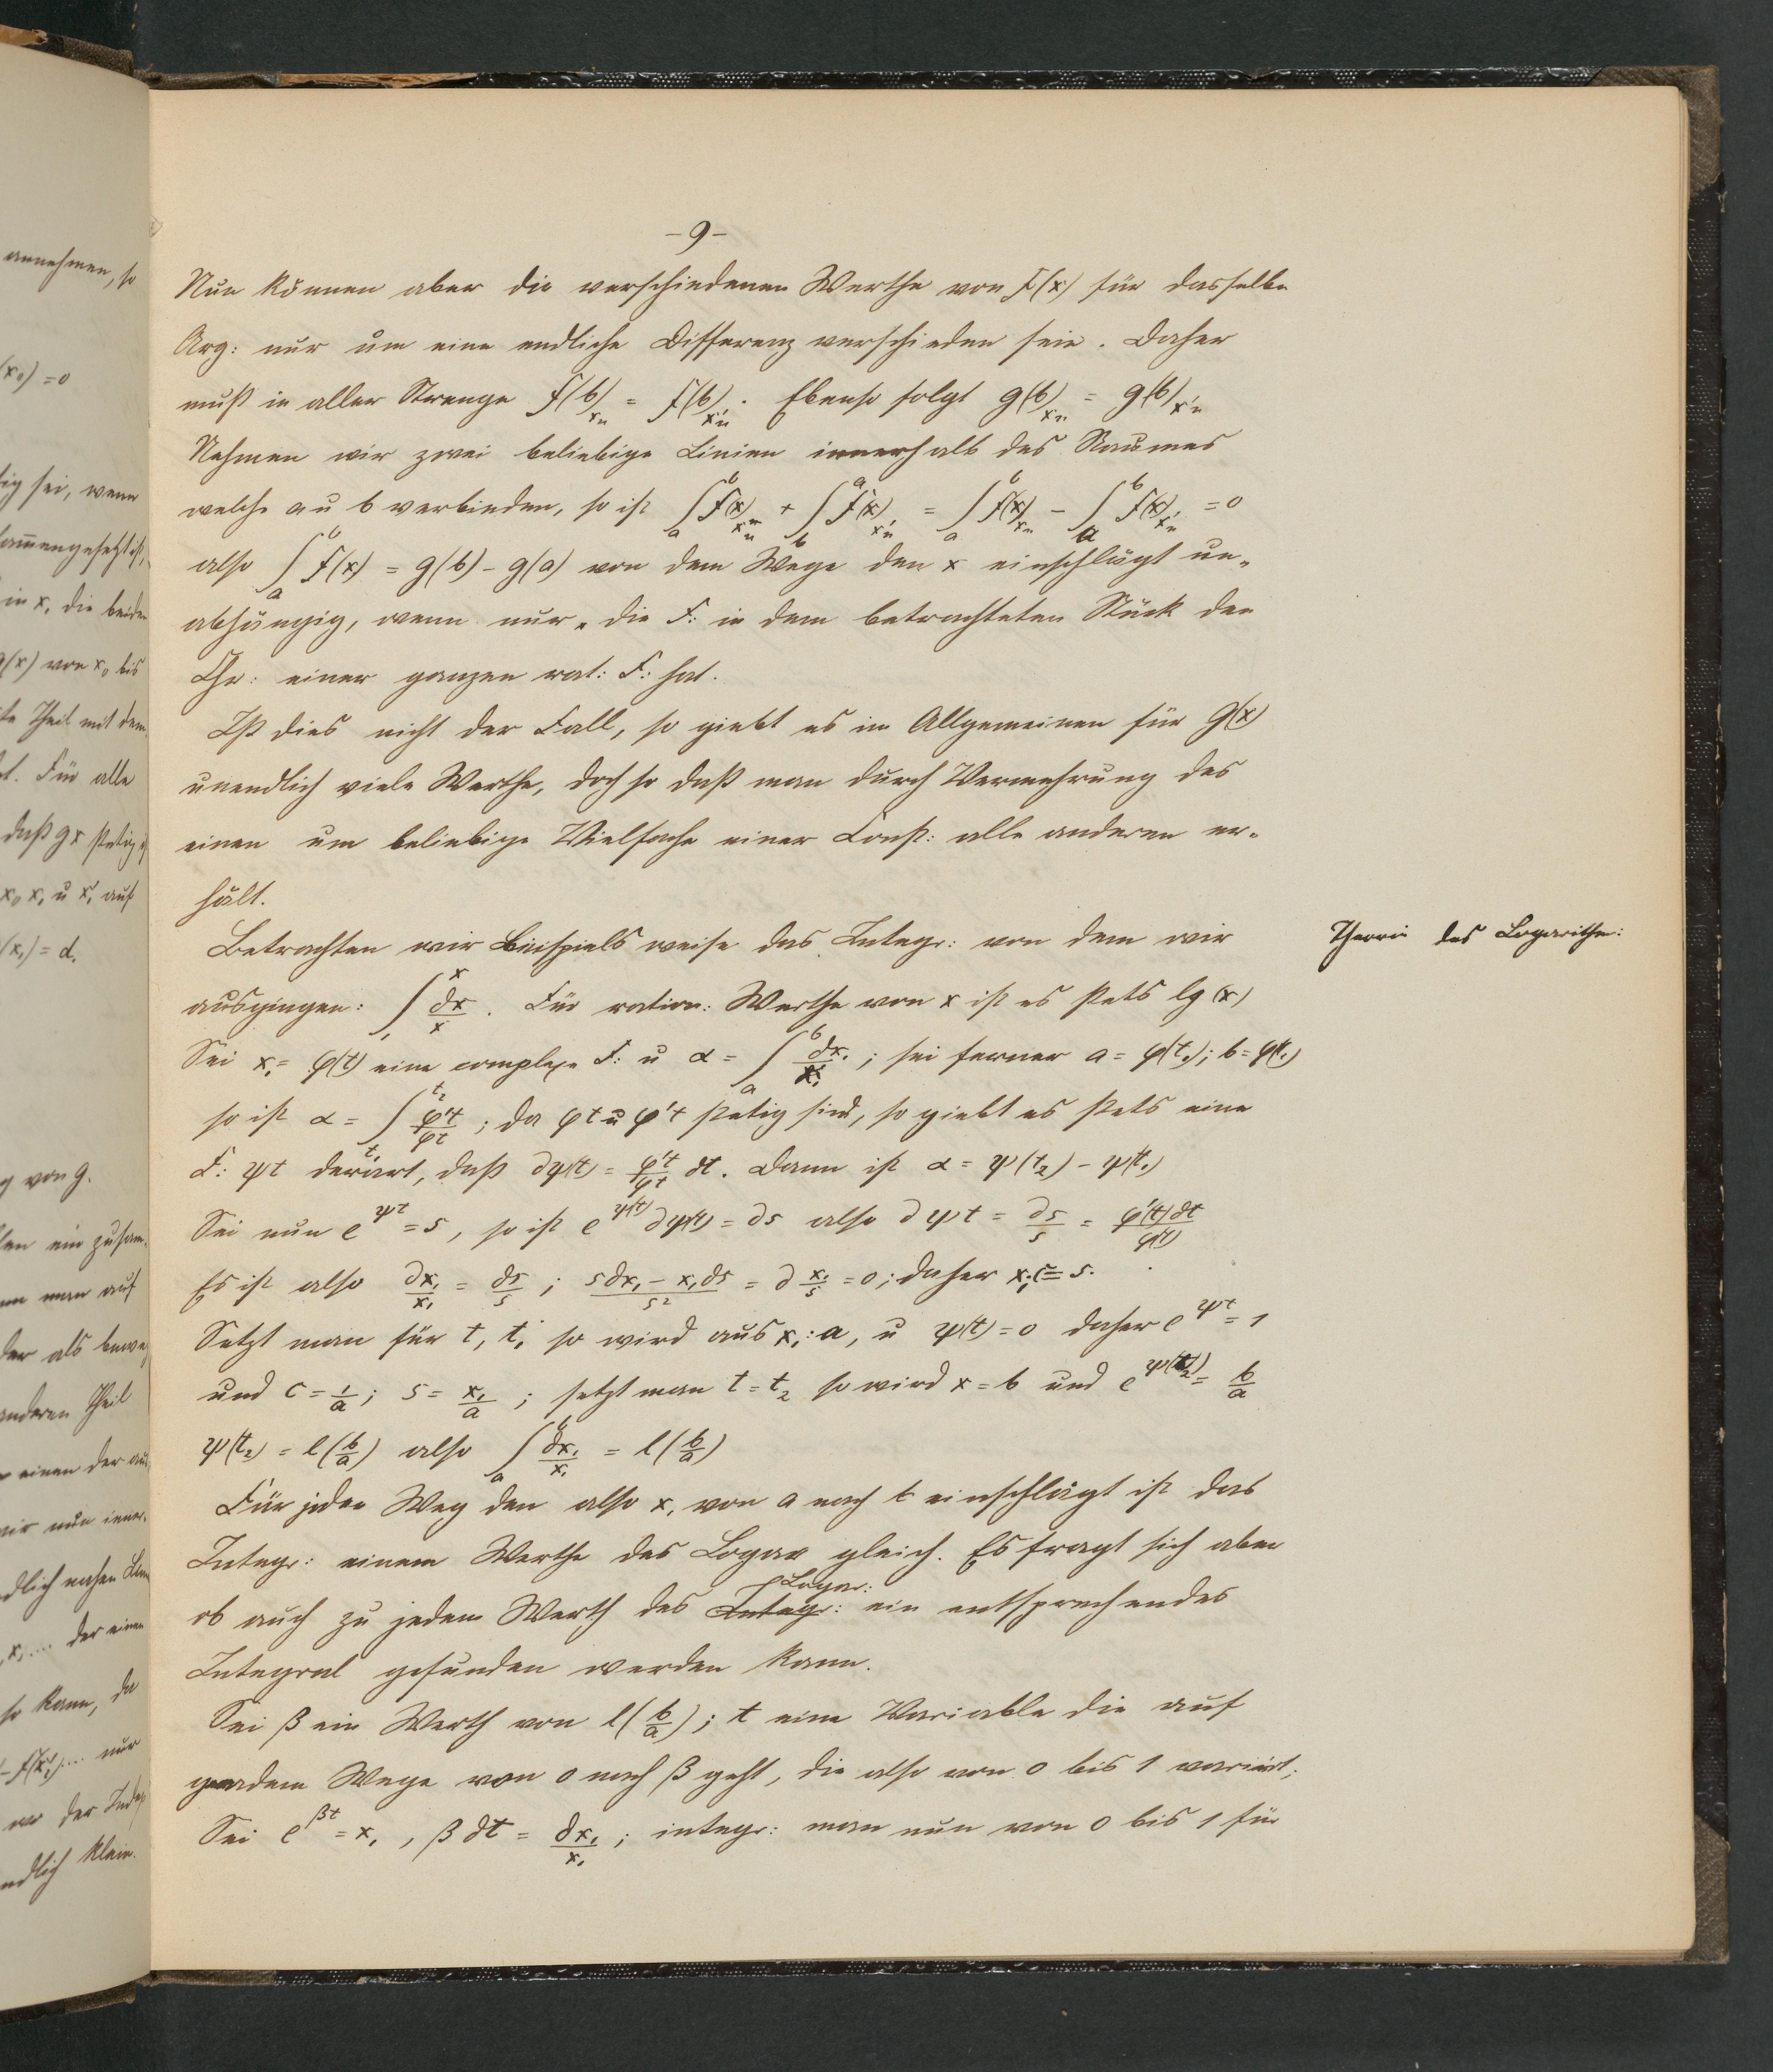 -9-
Nun können aber die verschiedenen Werthe von F(x) für dasselbe
Arg: nur um eine endliche Differenz verschieden sein. Daher
muß in aller Strenge f(b)_{x_n} = f(b)_{x'_n}. Ebenso folgt g(b)_{x_n} = g(b)_{x'_n}
Nehmen wir zwei beliebige Linien innerhalb des Raumes
welche a u b verbinden, so ist ∫_a^b f(x)_{x_n} + ∫_b^a f(x)_{x'_n} = ∫_a^b f(x)_{x_n} - ∫_a^b f(x)_{x'_n} = 0
also ∫_a^b f(x) = g(b) - g(a) von dem Wege den x einschlägt un-
abhängig, wenn nur die F: in dem betrachteten Stück den
Chr: einer ganzen rat: F: hat.
Ist dies nicht der Fall, so giebt es im Allgemeinen für g(x)
unendlich viele Werthe, doch so daß man durch Vermehrung des
einen um beliebige Vielfache einer Const: alle anderen er-
hält.
Betrachten wir Beispielsweise das Integr: von dem wir
Theorie des Logarithm:
ausgingen: ∫_1^x dx/x. Für ration: Werthe von x ist es stets lg(x)
Sei x_1 = φ(t) eine complexe F: u α = ∫_a^b dx_1/x_1; sei ferner a = φ(t_1); b = φ(t_2)
so ist α = ∫_{t_1}^{t_2} φ't/φt; da φt u φ't stetig sind, so giebt es stets eine
F: ψt derart, daß ∂ψ(t) = φ't/φt ∂t. Dann ist α = ψ(t_2) - ψ(t_1)
Sei nun e^{ψt} = s, so ist e^{ψ(t)} ∂ψ(t) = ∂s also ∂ψt = ∂s/s = φ'(t)∂t/φ(t)
Es ist also ∂x_1/x_1 = ∂s/s; s∂x_1 - x_1∂s/s² = ∂ x_1/s = 0; daher x_1c = s.
Setzt man für t, t_1 so wird aus x_1: a, u ψ(t) = 0 daher e^{ψt} = 1
und c = 1/a; s = x_1/a; setzt man t = t_2 so wird x = b und e^{ψ(t_2)} = b/a
ψ(t_2) = l(b/a) also ∫_a^b dx_1/x_1 = l(b/a)
Für jeden Weg den also x_1 von a nach b einschlägt ist das
Integr: einem Werthe des Logar gleich. Es fragt sich aber
ob auch zu jedem Werth des Logar: ein entsprechendes
Integral gefunden werden kann.
Sei β ein Werth von l(b/a); t eine Variable die auf
geradem Wege von 0 nach β geht, die also von 0 bis 1 variirt;
Sei e^{βt} = x_1, β∂t = ∂x_1/x_1; integr: man nun von 0 bis 1 für